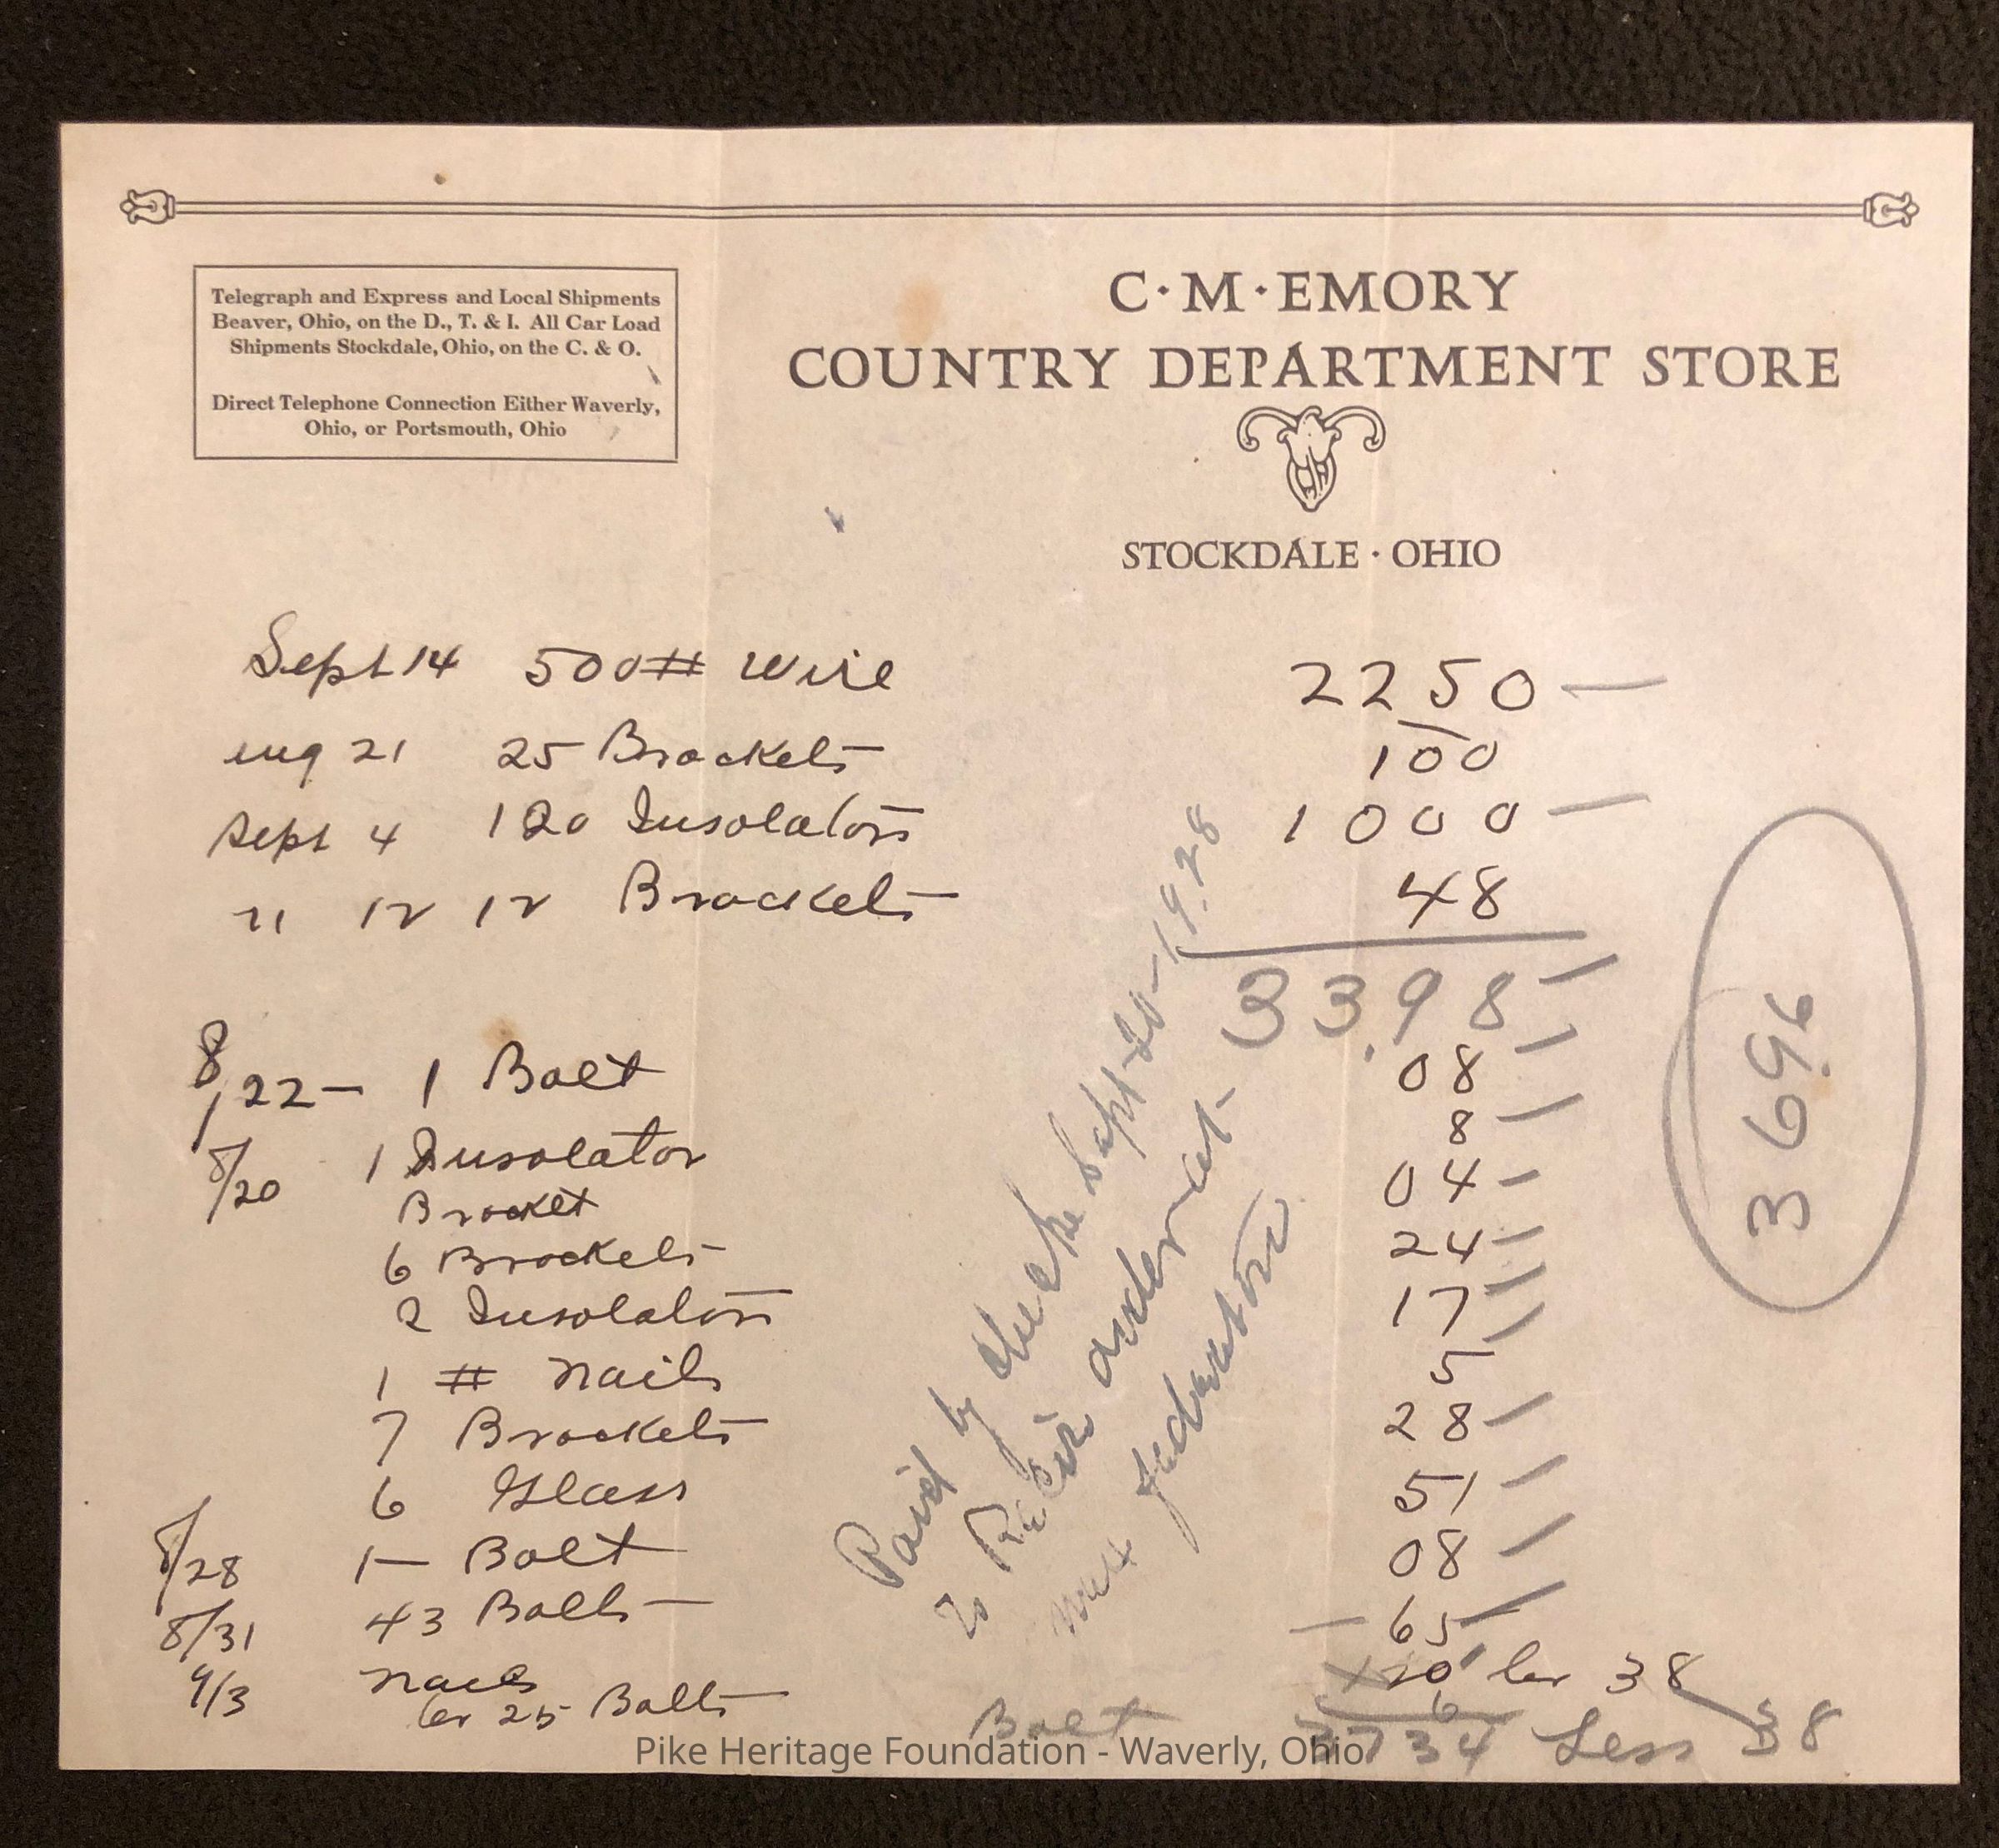 Telegraph and Express and Local Shipments
Beaver, Ohio, on the D., T. & I. All Car Load
Shipments Stockdale, Ohio, on the C. & O.
Direct Telephone Connection Either Waverly,
Ohio, or Portsmouth, Ohio
C·M·EMORY
COUNTRY DEPARTMENT STORE
STOCKDALE · OHIO
Sept 14 500# Wire 2250 —
Aug 21 25 Brackets 100
Sept 4 120 Insolators 1000 —
" 12 12 Brackets 48
33.98
8/22 — 1 Bolt 08
8/20 1 Insolator 8
Bracket 04
6 Brackets 24
2 Insolators 17
1 # Nails 5
7 Brackets 28
6 Glass 51
8/28 1 — Bolt 08
8/31 43 Bolts — 65
9/3 Nails 20 Cr 38
Cr 25 Bolts 6
Bolt 3734 Less 38
Paid by check Sept-20-1928
to
36.96
Pike Heritage Foundation - Waverly, Ohio